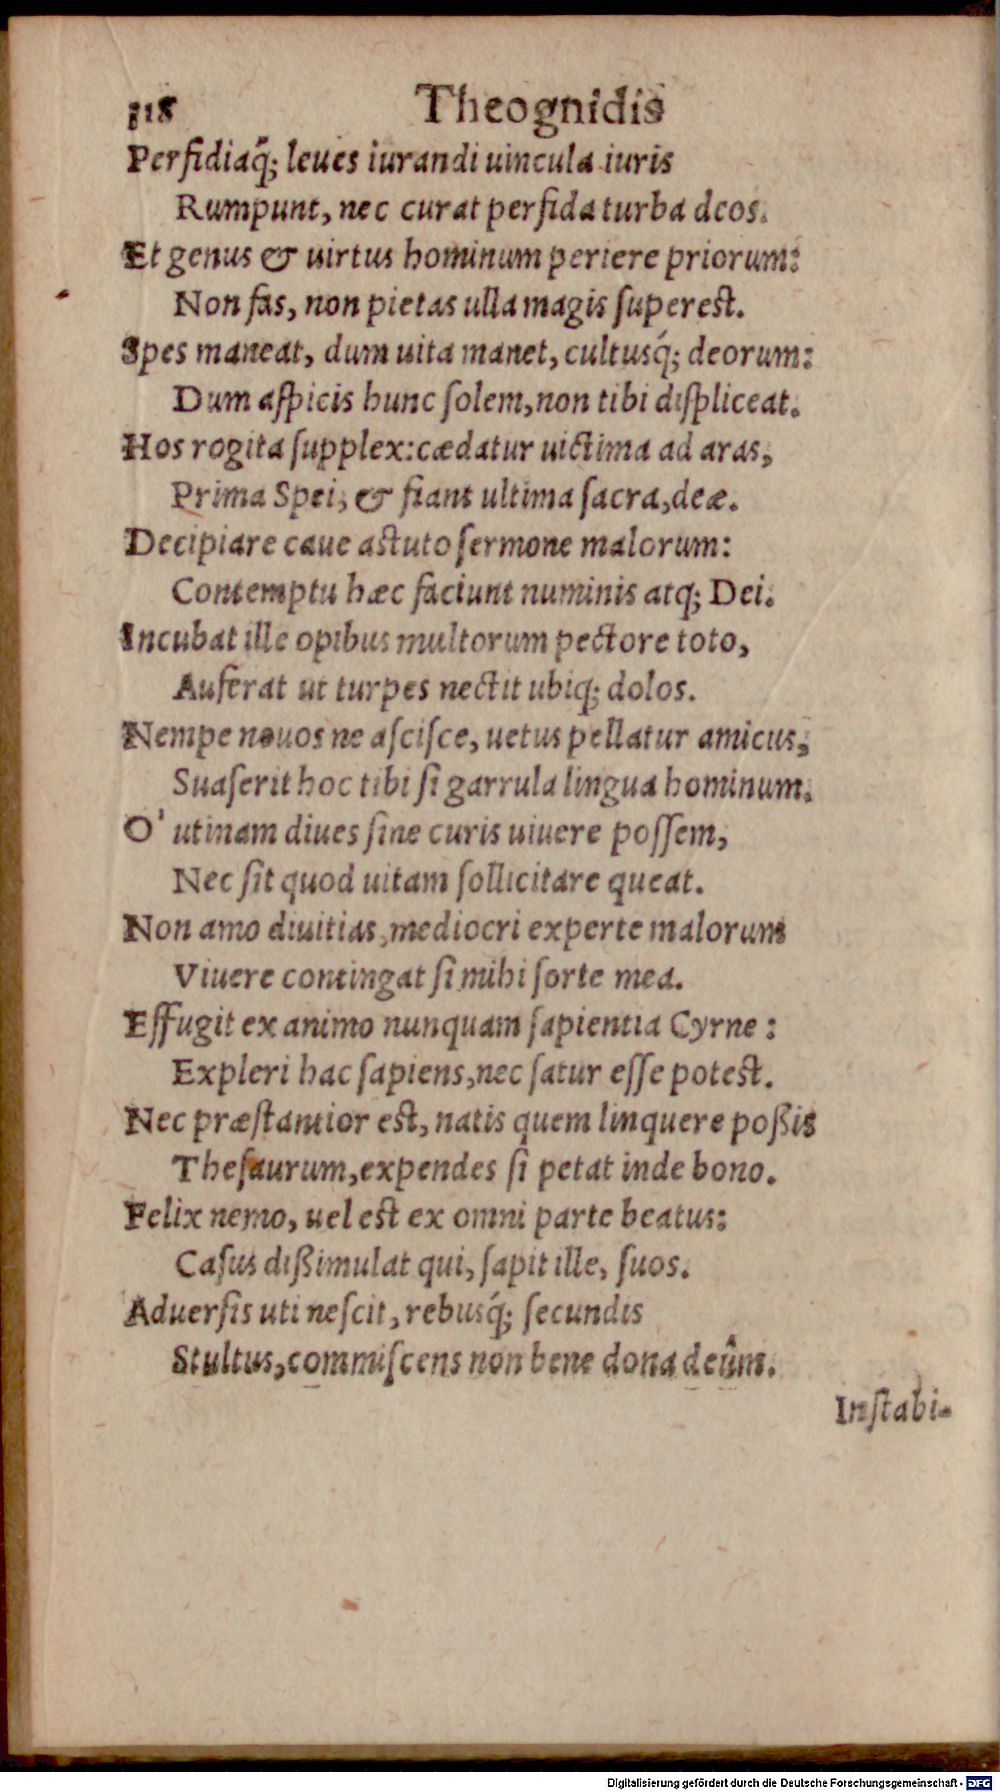 118 Theognidis
Perfidiaq́; leues iurandi uincula iuris
Rumpunt, nec curat perfida turba deos.
Et genus & uirtus hominum periere priorum:
Non fas, non pietas ulla magis ſupereſt.
Spes maneat, dum uita manet, cultusq́; deorum:
Dum aſpicis hunc ſolem, non tibi diſpliceat.
Hos rogita ſupplex: cædatur uictima ad aras,
Prima Spei, & fiant ultima ſacra, deæ.
Decipiare caue aſtuto ſermone malorum:
Contemptu hæc faciunt numinis atq; Dei.
Incubat ille opibus multorum pectore toto,
Auferat ut turpes nectit ubiq; dolos.
Nempe nouos ne aſciſce, uetus pellatur amicus,
Suaſerit hoc tibi ſi garrula lingua hominum.
O' utinam diues ſine curis uiuere poſſem,
Nec ſit quod uitam ſollicitare queat.
Non amo diuitias, mediocri experte malorum
Viuere contingat ſi mihi ſorte mea.
Effugit ex animo nunquam ſapientia Cyrne:
Expleri hac ſapiens, nec ſatur eſſe poteſt.
Nec præſtantior eſt, natis quem linquere poßis
Theſaurum, expendes ſi petat inde bono.
Felix nemo, uel eſt ex omni parte beatus:
Caſus dißimulat qui, ſapit ille, ſuos.
Aduerſis uti neſcit, rebusq́; ſecundis
Stultus, commiſcens non bene dona deûm.
Inſtabi-
Digitalisierung gefördert durch die Deutsche Forschungsgemeinschaft - DFG